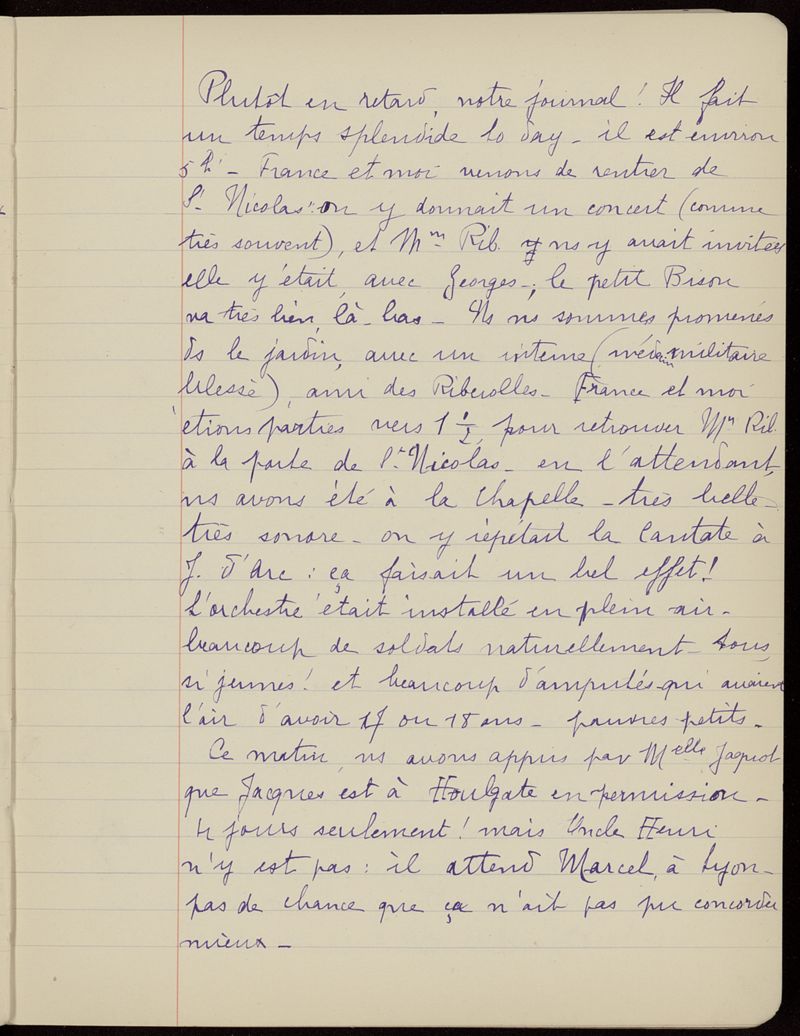 Plutôt en retard, notre journal! Il fait
un temps splendide to day - il est environ
5h - France et moi venons de rentrer de
St Nicolas: on y donnait un concert (comme
très souvent), et Mme Rib. ns y avait invitées
elle y était, avec Georges -; le petit Bison
va très bien, là-bas - Ns ns sommes promenés
ds le jardin, avec un interne (médecin militaire
blessé), ami des Riberolles - France et moi
étions parties vers 1 h 1/2, pour retrouver Mme Rib
à la porte de St Nicolas - en l'attendant,
ns avons été à la chapelle - très belle -
très sonore - on y répétait la Cantate à
J. d'Arc : ça faisait un bel effet!
L'orchestre était installé en plein air -
beaucoup de soldats naturellement - tous,
si jeunes! et beaucoup d'amputés qui avaient
l'air d'avoir 17 ou 18 ans - pauvres petits -
Ce matin, ns avons appris par Melle Jaquot
que Jacques est à Houlgate en permission -
4 jours seulement! mais Uncle Henri
n'y est pas: il attend Marcel, à Lyon -
pas de chance que ça n'ait pas pu concorder
mieux -